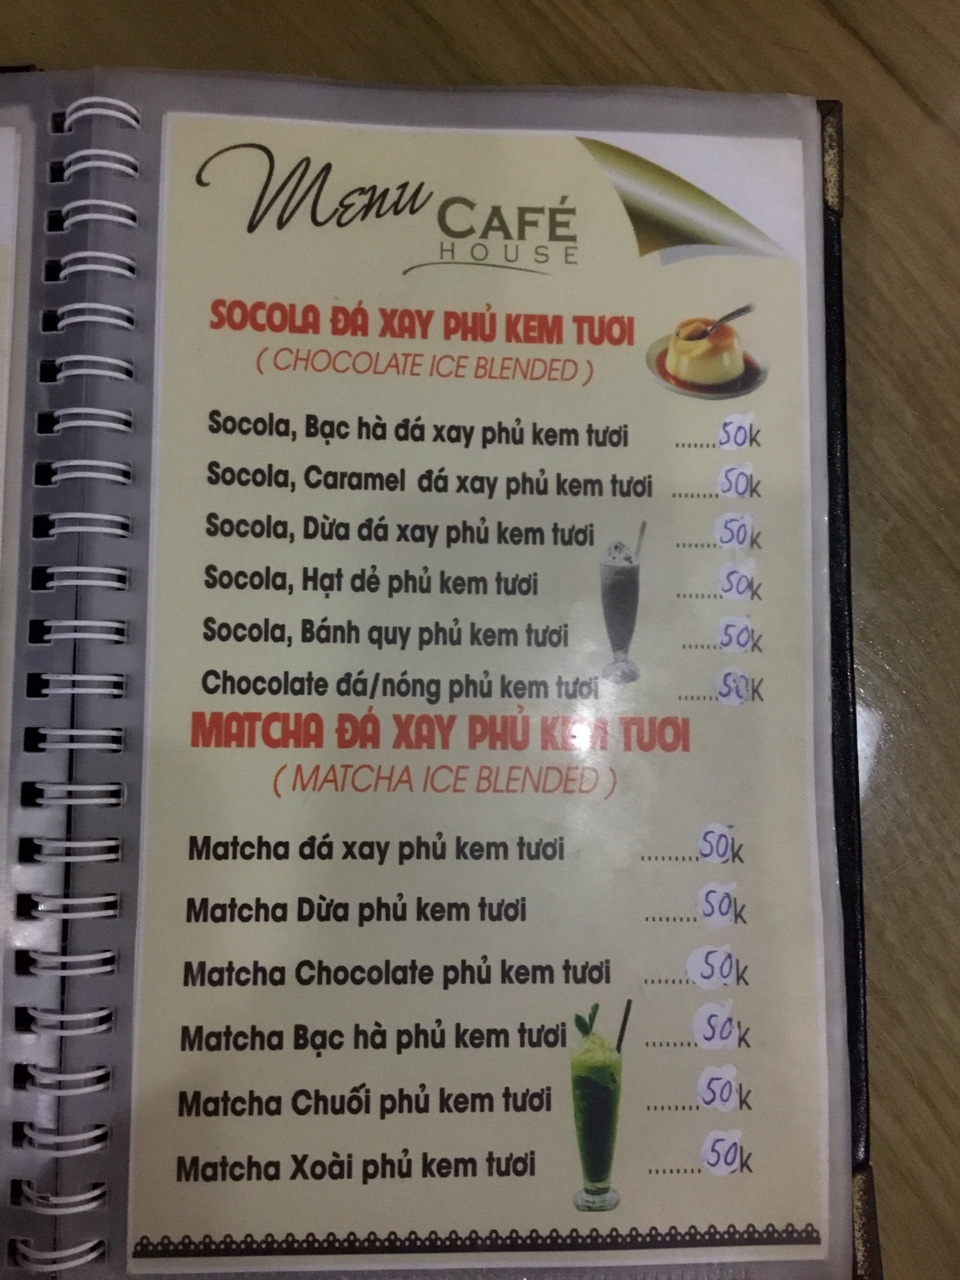 Menu CAFÉ
HOUSE
SOCOLA ĐÁ XAY PHỦ KEM TƯƠI
( CHOCOLATE ICE BLENDED )
Socola, Bạc hà đá xay phủ kem tươi .......50k
Socola, Caramel đá xay phủ kem tươi ........50k
Socola, Dừa đá xay phủ kem tươi .......50k
Socola, Hạt dẻ phủ kem tươi ........50k
Socola, Bánh quy phủ kem tươi ......50k
Chocolate đá/nóng phủ kem tươi .......50K
MATCHA ĐÁ XAY PHỦ KEM TƯƠI
( MATCHA ICE BLENDED )
Matcha đá xay phủ kem tươi .........50k
Matcha Dừa phủ kem tươi ........50k
Matcha Chocolate phủ kem tươi ........50k
Matcha Bạc hà phủ kem tươi ........50k
Matcha Chuối phủ kem tươi ........50k
Matcha Xoài phủ kem tươi ........50k